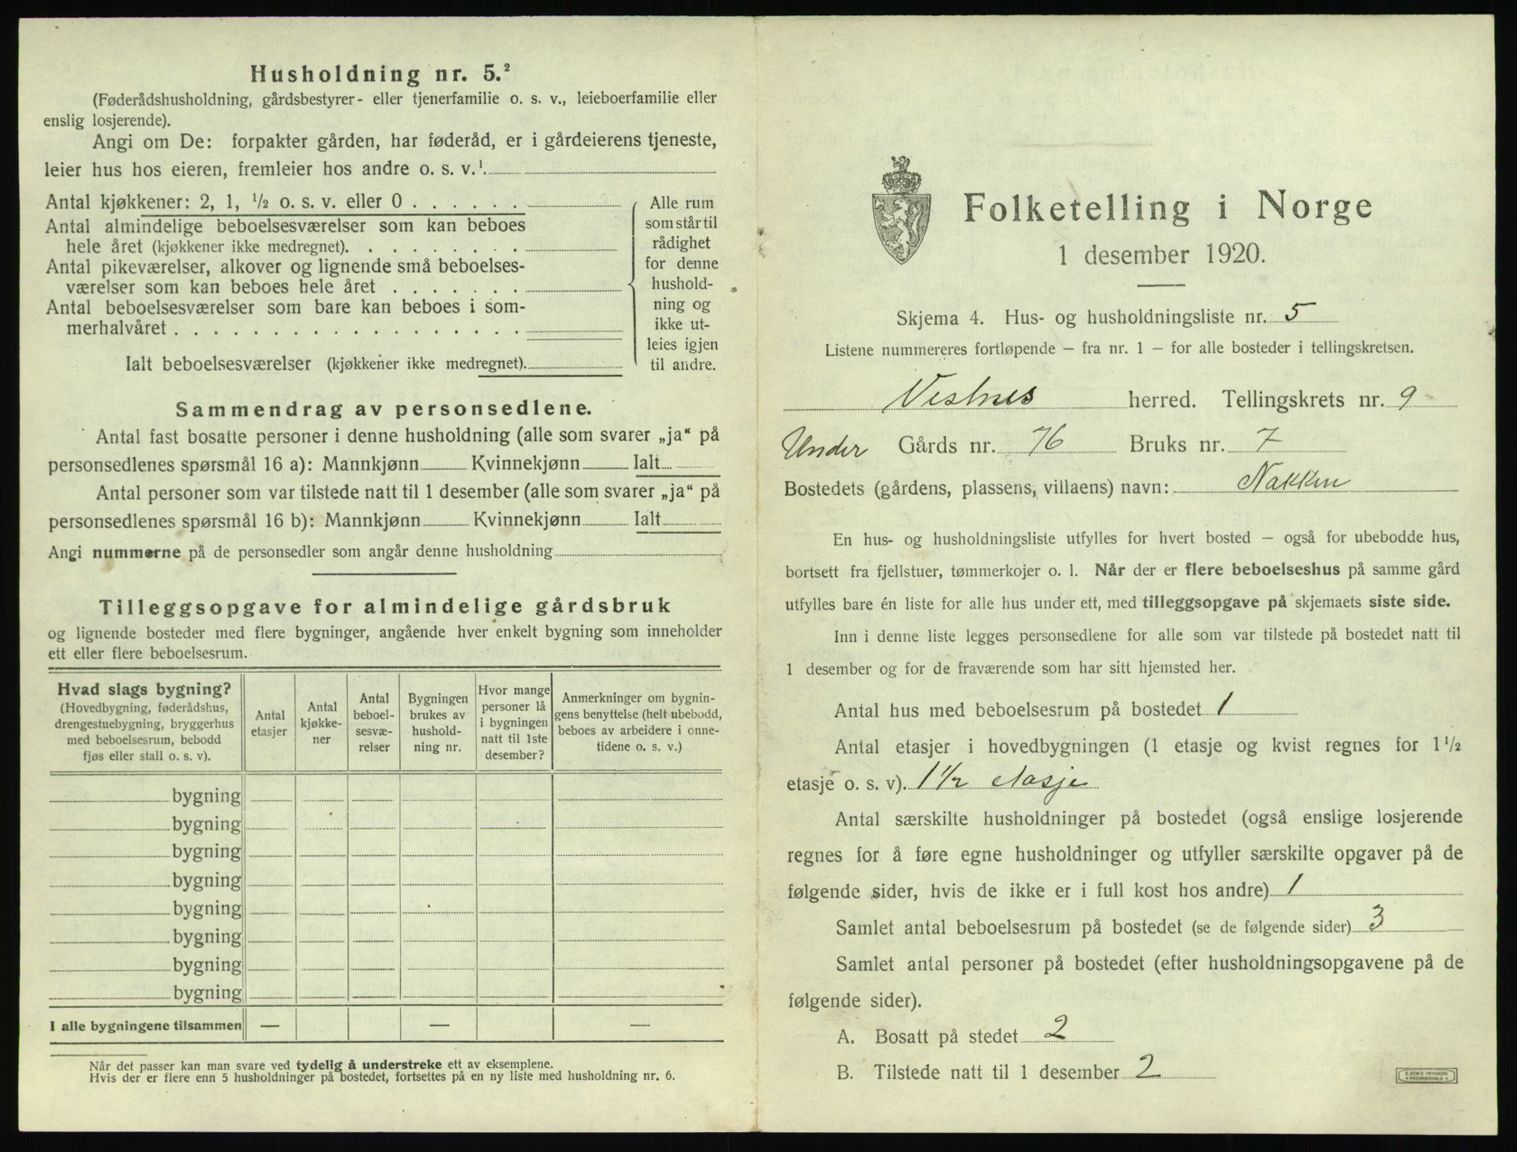 Husholdning nr. 5.²
(Føderådshusholdning, gårdsbestyrer- eller tjenerfamilie o. s. v., leieboerfamilie eller
enslig losjerende).
Angi om De: forpakter gården, har føderåd, er i gårdeierens tjeneste,
leier hus hos eieren, fremleier hos andre o. s. v.¹
Antal kjøkkener: 2, 1, ½ o. s. v. eller 0
Antal almindelige beboelsesværelser som kan beboes
hele året (kjøkkener ikke medregnet).
Antal pikeværelser, alkover og lignende små beboelses-
værelser som kan beboes hele året
Antal beboelsesværelser som bare kan beboes i som-
merhalvåret
Ialt beboelsesværelser (kjøkkener ikke medregnet).
Alle rum
som står til
rådighet
for denne
hushold-
ning og
ikke ut-
leies igjen
til andre.
Sammendrag av personsedlene.
Antal fast bosatte personer i denne husholdning (alle som svarer „ja“ på
personsedlenes spørsmål 16 a): Mannkjønn Kvinnekjønn Ialt
Antal personer som var tilstede natt til 1 desember (alle som svarer „ja“ på
personsedlenes spørsmål 16 b): Mannkjønn Kvinnekjønn Ialt
Angi nummerne på de personsedler som angår denne husholdning
Tilleggsopgave for almindelige gårdsbruk
og lignende bosteder med flere bygninger, angående hver enkelt bygning som inneholder
ett eller flere beboelsesrum.
Hvad slags bygning?
(Hovedbygning, føderådshus,
drengestuebygning, bryggerhus
med beboelsesrum, bebodd
fjøs eller stall o. s. v).
Antal
etasjer
Antal
kjøkke-
ner
Antal
beboel-
sesvæ-
relser
Bygningen
brukes av
hushold-
ning nr.
Hvor mange
personer lå
i bygningen
natt til 1ste
desember?
Anmerkninger om bygnin-
gens benyttelse (helt ubebodd,
beboes av arbeidere i onne-
tidene o. s. v.)
bygning
bygning
bygning
bygning
bygning
bygning
bygning
bygning
I alle bygningene tilsammen — — —
Når det passer kan man svare ved tydelig å understreke ett av eksemplene.
Hvis der er flere enn 5 husholdninger på bostedet, fortsettes på en ny liste med husholdning nr. 6.
Folketelling i Norge
1 desember 1920.
Skjema 4. Hus- og husholdningsliste nr. 5
Listene nummereres fortløpende — fra nr. 1 — for alle bosteder i tellingskretsen.
Vestnes herred. Tellingskrets nr. 9
Under Gårds nr. 76 Bruks nr. 7
Bostedets (gårdens, plassens, villaens) navn: Nakken
En hus- og husholdningsliste utfylles for hvert bosted — også for ubebodde hus,
bortsett fra fjellstuer, tømmerkojer o. l. Når der er flere beboelseshus på samme gård
utfylles bare én liste for alle hus under ett, med tilleggsopgave på skjemaets siste side.
Inn i denne liste legges personsedlene for alle som var tilstede på bostedet natt til
1 desember og for de fraværende som har sitt hjemsted her.
Antal hus med beboelsesrum på bostedet 1
Antal etasjer i hovedbygningen (1 etasje og kvist regnes for 1 ½
etasje o. s. v). 1½ etasje
Antal særskilte husholdninger på bostedet (også enslige losjerende
regnes for å føre egne husholdninger og utfyller særskilte opgaver på de
følgende sider, hvis de ikke er i full kost hos andre) 1
Samlet antal beboelsesrum på bostedet (se de følgende sider) 3
Samlet antal personer på bostedet (efter husholdningsopgavene på de
følgende sider).
A. Bosatt på stedet 2
B. Tilstede natt til 1 desember 2